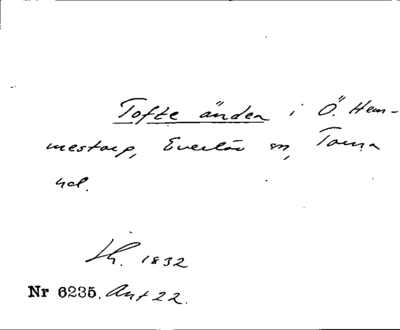 Tofte änden i Ö. Hem-
mestorp, Everlöv sn, Torna
hd.
Lh. 1832
Nr 6235. Ant 22.